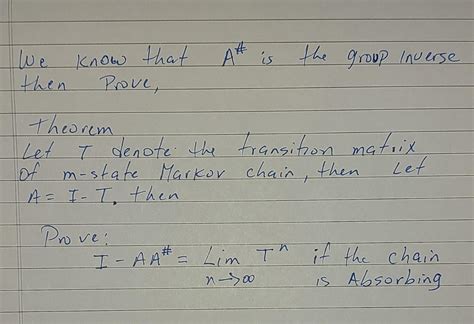 We know that A# is the group inverse
then Prove,
Theorem
Let T denote the transition matrix
of m-state Markov chain, then Let
A = I - T. then
Prove:
I - AA# = Lim T^n if the chain
n→∞ is Absorbing